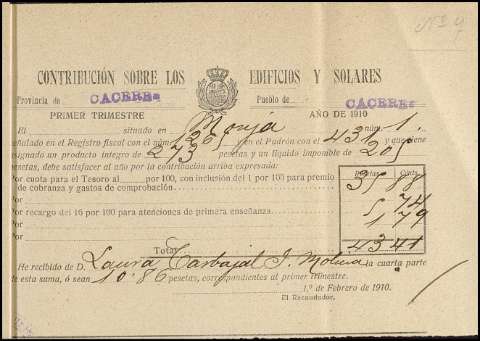 CONTRIBUCIÓN SOBRE LOS EDIFICIOS Y SOLARES
Provincia de CACERES Pueblo de CACERES
PRIMER TRIMESTRE AÑO DE 1910
El situado en Monja núm. 1
señalado en el Registro fiscal con el núm. 1265 en el Padrón con el 431 y que tiene
asignado un producto íntegro de 273 pesetas y un líquido imponible de 205
pesetas, debe satisfacer al año por la contribución arriba expresada:
Por cuota para el Tesoro al por 100, con inclusión del 1 por 100 para premio 35 88
de cobranza y gastos de comprobación
Por 5 74
Por recargo del 16 por 100 para atenciones de primera enseñanza 1 79
Por
Total 43 41
He recibido de D. Laura Carbajal J. Molina la cuarta parte
de esta suma, ó sean 10'86 pesetas, correspondientes al primer trimestre.
1.º de Febrero de 1910.
El Recaudador,